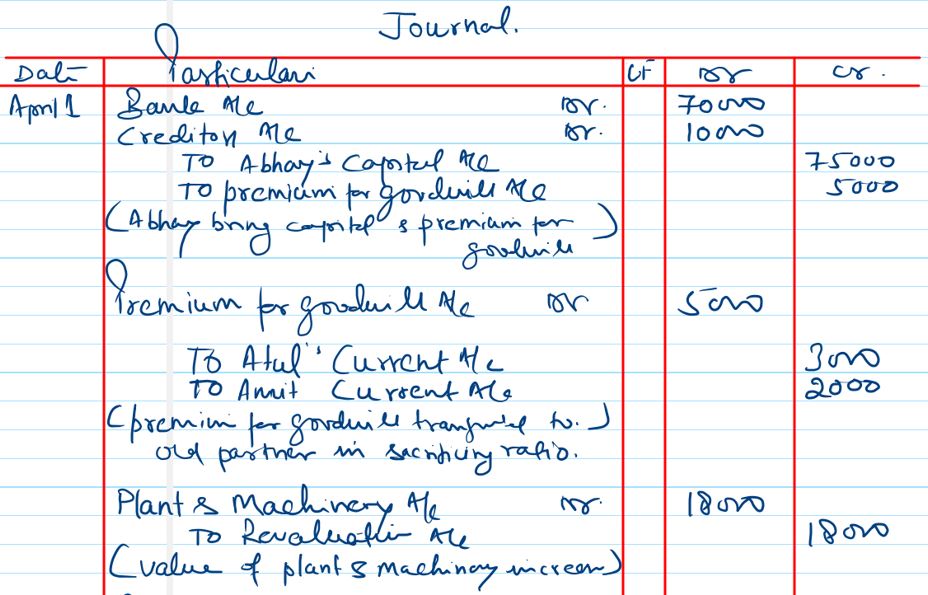 Journal.
Date Particulars LF Dr Cr.
April 1 Bank A/c Dr. 70000
Creditors A/c Dr. 10000
To Abhay's Capital A/c 75000
To premium for goodwill A/c 5000
(Abhay bring capital & premium for
goodwill)
Premium for goodwill A/c Dr 5000
To Atul's Current A/c 3000
To Amit Current A/c 2000
(premium for goodwill transferred to.)
old partner in sacrificing ratio.
Plant & Machinery A/c Dr. 18000
To Revaluation A/c 18000
(value of plant & machinery increase)